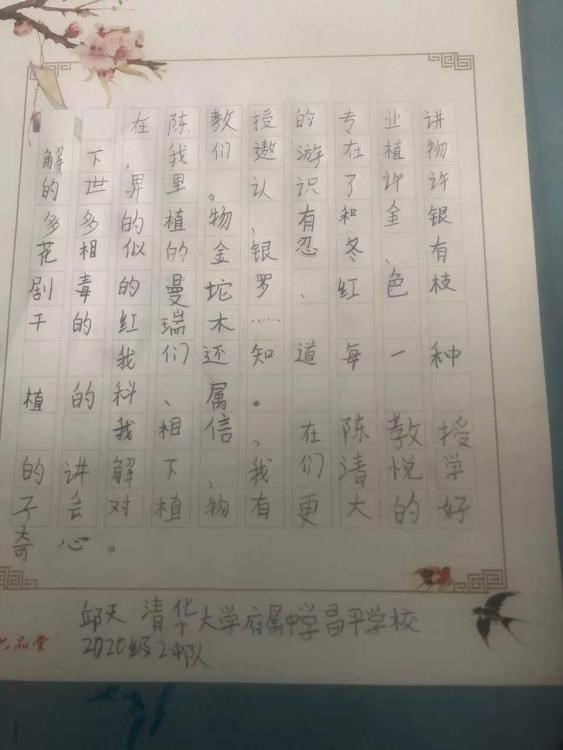 在陈教授的专业讲
解下，我们遨游在植物
的世界里。认识了许许
多多的植物，有和金、银
花相似的金银忍冬、有
剧毒的曼坨罗、红色枝
干的红瑞木……
我们还知道每一种
植的科、属。
我相信，在陈教授
的讲解下，我们清悦的学
子会对植物有更大的好
奇心。
邱天 清华大学府属中学昌平学校
2020级2中队
品堂